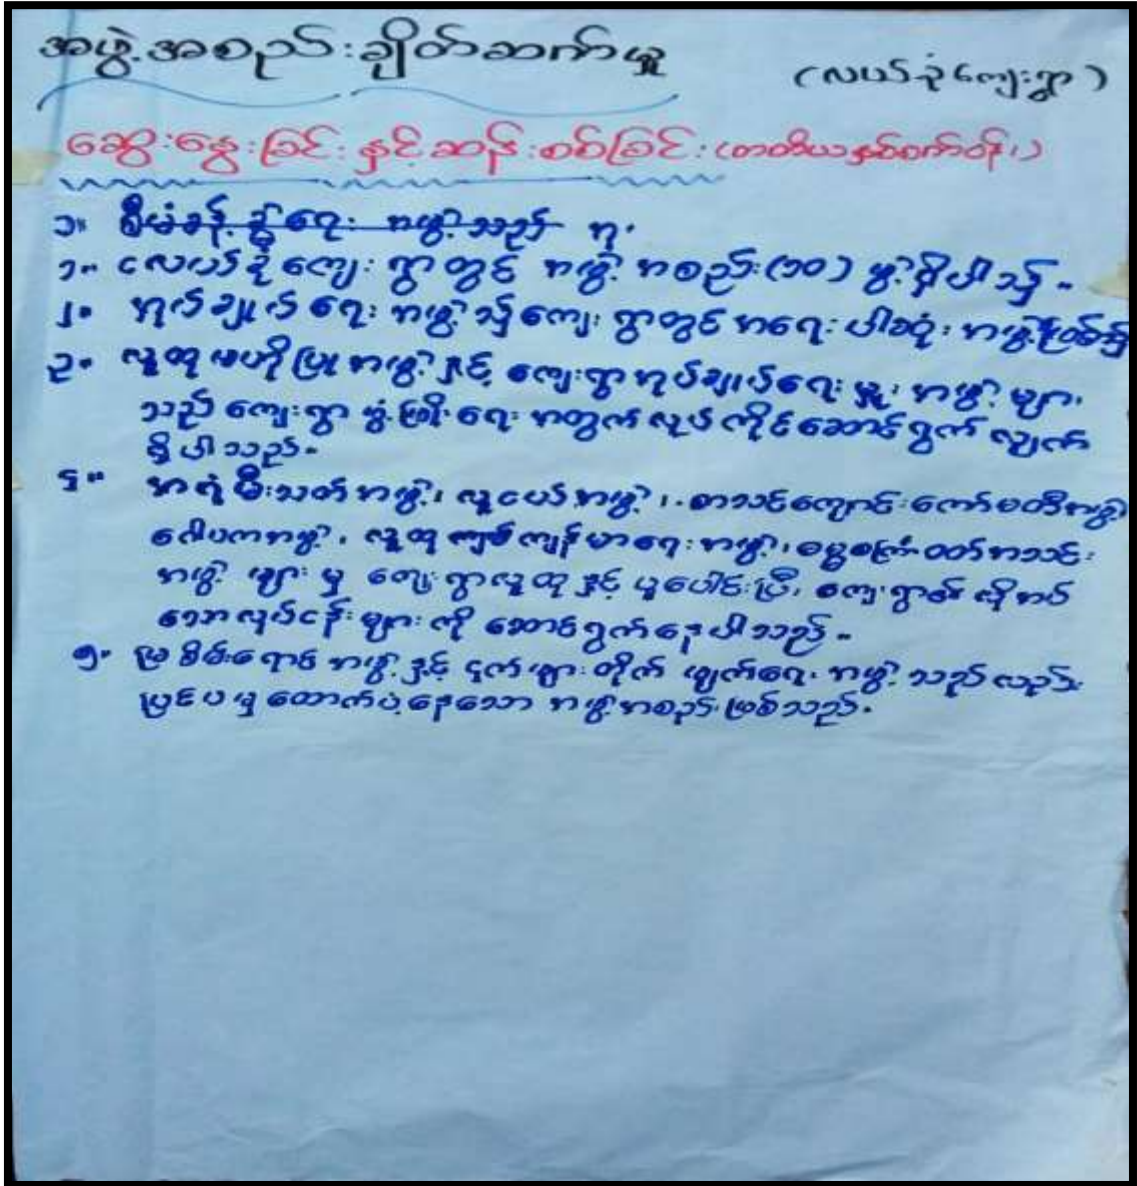 အဖွဲ့အစည်းချိတ်ဆက်မှု
(လယ်ခုံကျေးရွာ)
ဆွေးနွေးခြင်းနှင့်ဆန်းစစ်ခြင်း (တတိယနှစ်ဝက်
၁။ စီမံခန့်ခွဲရေး အဖွဲ့သည်
၁။ လယ်ခုံကျေးရွာတွင် အဖွဲ့အစည်း(၁၀)ဖွဲ့ရှိပါသည်။
၂။ အုပ်ချုပ်ရေးအဖွဲ့သည်ကျေးရွာတွင် အရေးပါဆုံးအဖွဲ့ဖြစ်သည်
၃။ လူထုဗဟိုပြုအဖွဲ့နှင့် ကျေးရွာအုပ်ချုပ်ရေးမှူးအဖွဲ့များ
သည် ကျေးရွာဖွံ့ဖြိုးရေးအတွက် လုပ်ကိုင်ဆောင်ရွက်လျှက်
ရှိပါသည်။
၄။ အရံမီးသတ်အဖွဲ့၊ လူငယ်အဖွဲ့၊ စာသင်ကျောင်းကော်မတီအဖွဲ့
ဂေါပကအဖွဲ့၊ လူထုကျန်းမာရေးအဖွဲ့၊ ဓမ္မစကြာဝတ်အသင်း
အဖွဲ့များမှ ကျေးရွာလူထုနှင့် ပူးပေါင်းပြီး ကျေးရွာ၏ လိုအပ်
သောလုပ်ငန်းများကို ဆောင်ရွက်နေပါသည်။
၅။ မြစိမ်းရောင်အဖွဲ့နှင့် ငှက်ဖျားတိုက်ဖျက်ရေးအဖွဲ့သည်လည်း
ပြင်ပမှထောက်ပံ့နေသော အဖွဲ့အစည်းဖြစ်သည်။